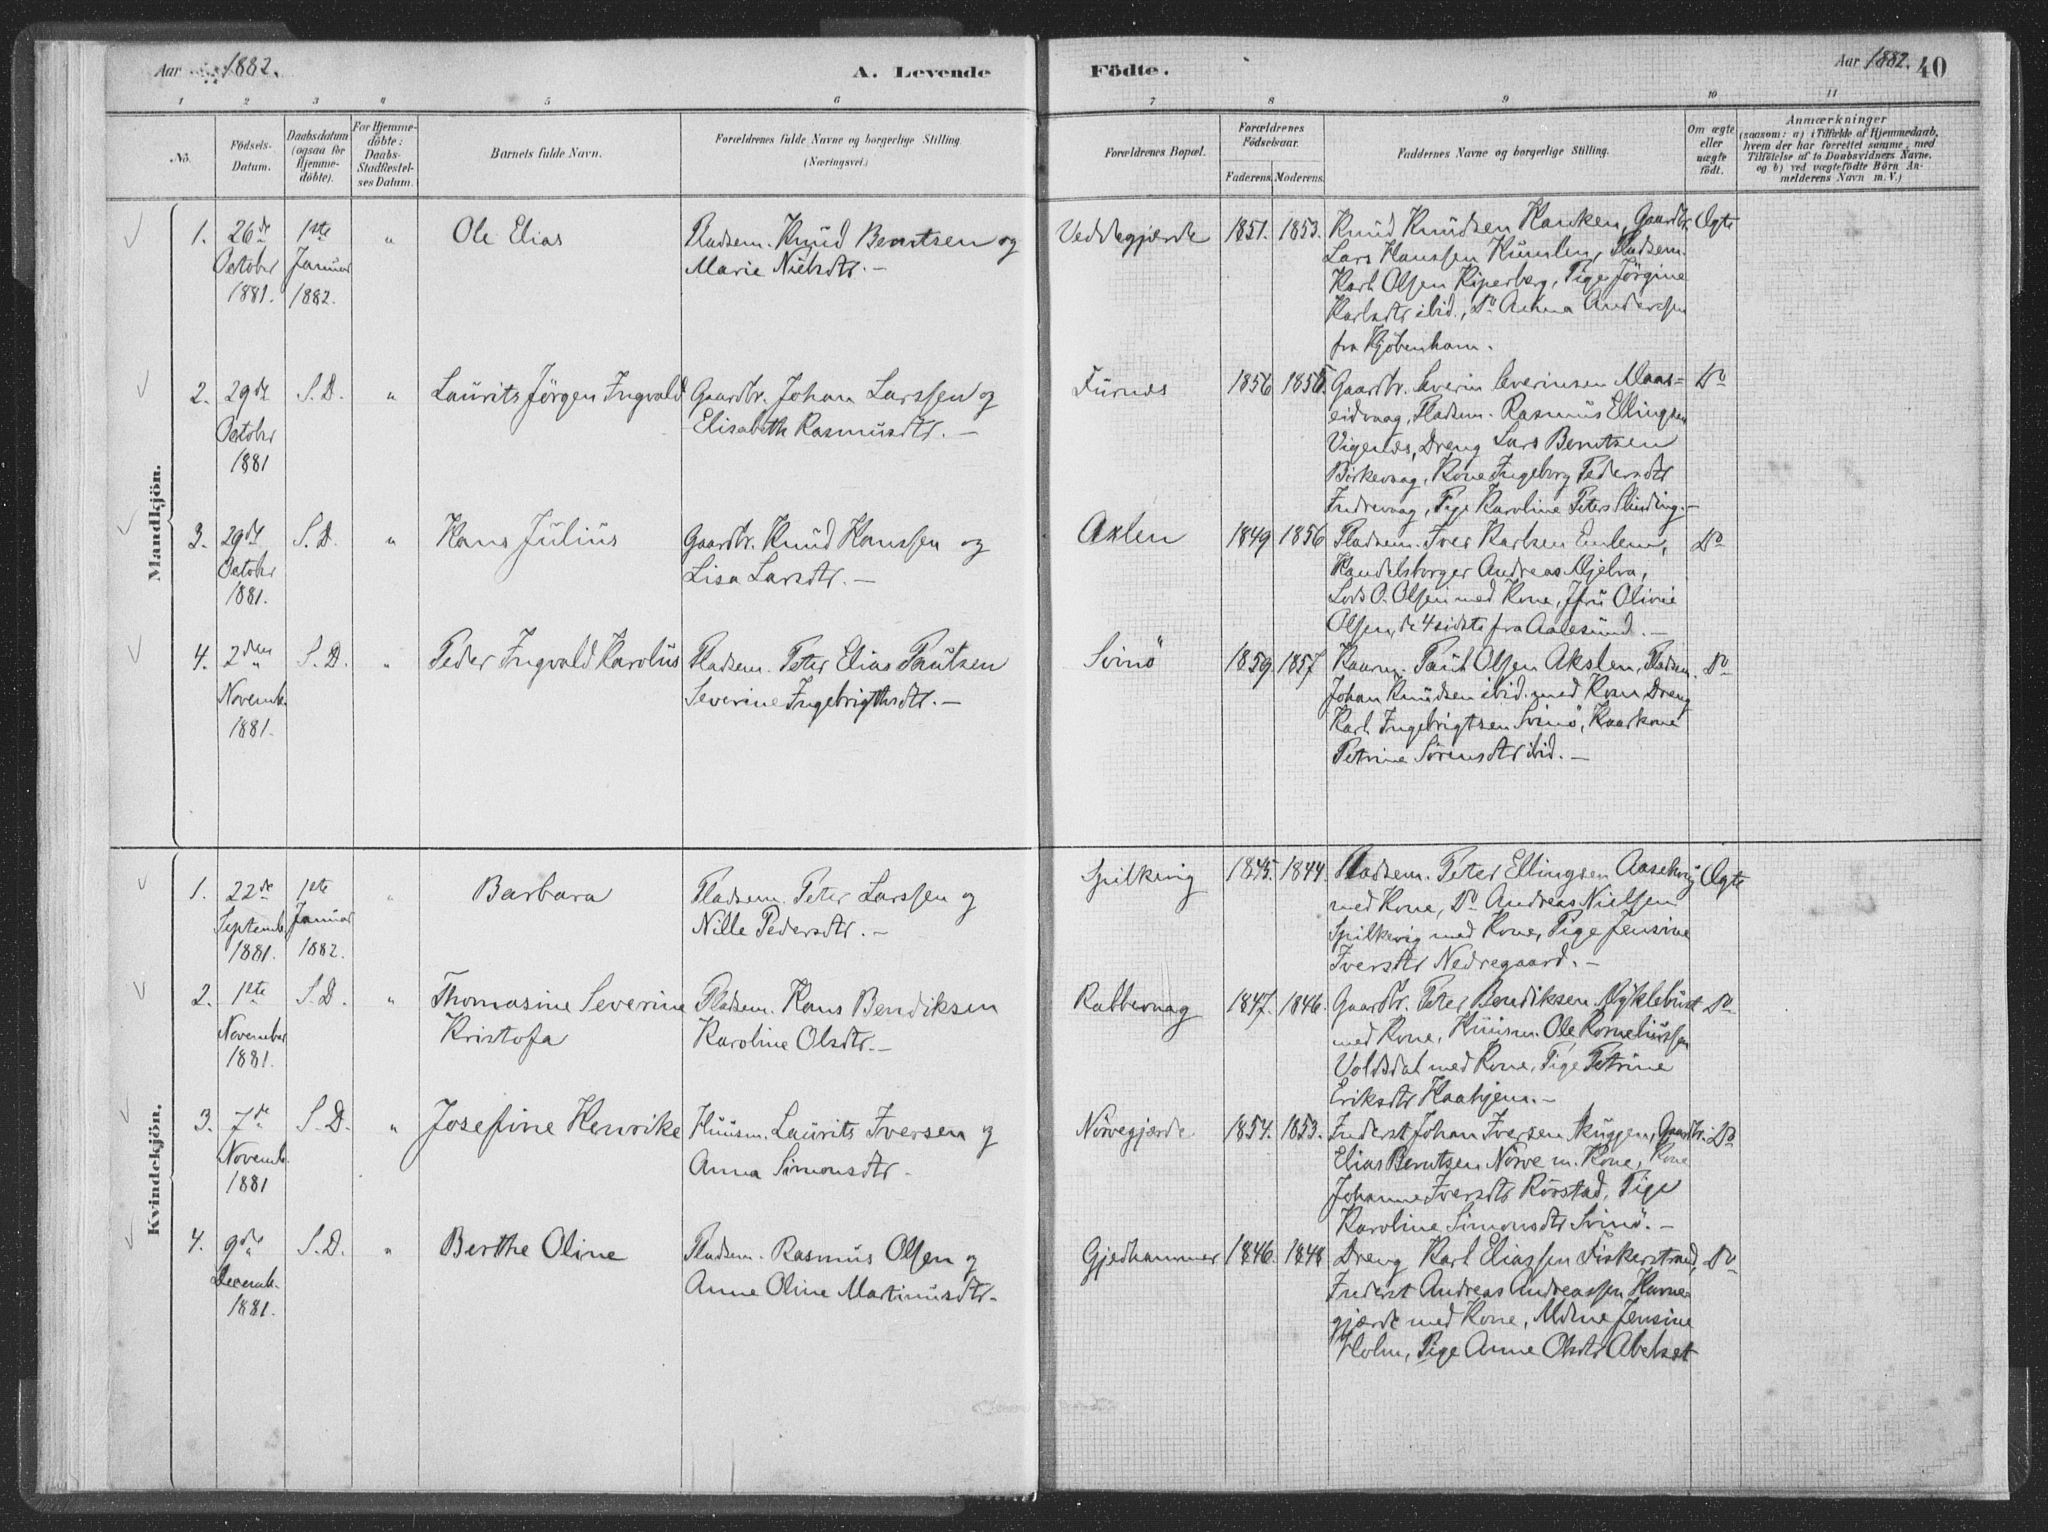 Aar 1882.
A. Levende
Födte.
Aar 1882.
40
1 2 3 4 5 6 7 8 9 10 11
No.
Födsels-Datum.
Daabsdatum (ogsaa for Hjemme-döbte).
For Hjemme-döbte: Daabs-Stadfæstel-ses Datum.
Barnets fulde Navn.
Forældrenes fulde Navne og borgerlige Stilling.
(Næringsvei.)
Forældrenes Bopæl.
Forældrenes Födselsaar.
Faderens. Moderens.
Faddernes Navne og borgerlige Stilling.
Om ægte eller uægte födt.
Anmærkninger
(saasom: a) i Tilfælde af Hjemmedaab,
hvem der har forrettet samme, med
Tilföielse af to Daabsvidners Navne,
og b) ved uægtefödte Börn An-
melderens Navn m. V.)
Mandkjön.
1. 26de October 1881. 1ste Januar 1882. " Ole Elias
Pladsm. Knud Berntsen og
Marie Nielsdtr. -
Veddegjærde 1851. 1853.
Knud Knudsen Hanken, Gaardbr.
Lars Hanssen Humlen, Pladsm.
Karl Olsen Kiperberg, Pige Jörgine
Karlsdtr ibid., Do Anna Andersen
fra Kjöbenhavn.
Ægte
2. 29de October 1881 S.D. " Laurits Jörgen Ingvald
Gaardbr. Johan Larssen og
Elisabeth Rasmusdtr. -
Furnes 1856 1855.
Gaardbr. Severin Severinsen Maas-
eidvaag, Pladsm. Rasmus Ellingsen
Vigenes, Dreng Lars Berntsen
Birkevaag, Kone Ingeborg Pedersdtr
Indrevaag, Pige Karoline Peters Slinding. -
Do
3. 29de October 1881. S.D. " Hans Julius
Gaardbr. Knud Hanssen og
Lisa Larsdtr. -
Axlen 1849 1856
Pladsm. Iver Karlsen Emlem,
Handelsborger Andreas Mjelva,
Lods O. Olsen med Kone, Jfru Olivie
Olsen, de 4 sidste fra Aalesund. -
Do
4. 2den November 1881. S.D. " Peder Ingvald Karolus
Pladsm. Peter Elias Paulsen
Severine Ingebrigthsdtr. -
Svinö 1859 1857
Kaarm. Paul Olsen Akslen, Pladsm.
Johan Knudsen ibid. med Kone, Dreng
Karl Ingebrigtsen Svinö, Kaarkone
Petrine Sörensdtr ibid. -
Do
Kvindekjön.
1. 22de Septemb. 1881. 1ste Januar 1882. " Barbara
Pladsm. Peter Larssen og
Nille Pedersdtr. -
Spilkevig 1845. 1844.
Pladsm. Peter Ellingsen Aasebvig
med Kone, Do Andreas Nielsen
Spilkevig med Kone, Pige Jensine
Iversdtr Nedregaard. -
Ægte
2. 1ste November 1881. S.D. " Thomasine Severine
Kristofa
Pladsm. Hans Bendiksen
Karoline Olsdtr. -
Rabbevaag 1847. 1846.
Gaardbr. Peter Bendiksen Myklebust
med Kone, Huusm. Ole Korneliussen
Voldsdal med Kone, Pige Petrine
Eriksdtr Haahjem. -
Do
3. 7de Novemb. 1881 S.D. " Josefine Henrike
Huusm. Laurits Iversen og
Anna Simonsdtr.
Nörvegjærde 1854. 1853.
Inderst Johan Iversen Skuggen, Gaardbr.
Elias Berntsen Nörve m. Kone, Kone
Johanne Iversdtr Rörstad, Pige
Karoline Simonsdtr Svinö. -
Do
4. 9de Decemb. 1881. S.D. " Berthe Oline
Pladsm. Rasmus Olsen og
Anne Oline Martinusdtr.
Gjedhammer 1846. 1848
Dreng Karl Eliassen Fiskerstrand,
Inderst Andreas Andreassen Havne-
gjærde med Kone, Mdme Jensine
Holm, Pige Anne Olsdtr Abelset
Do